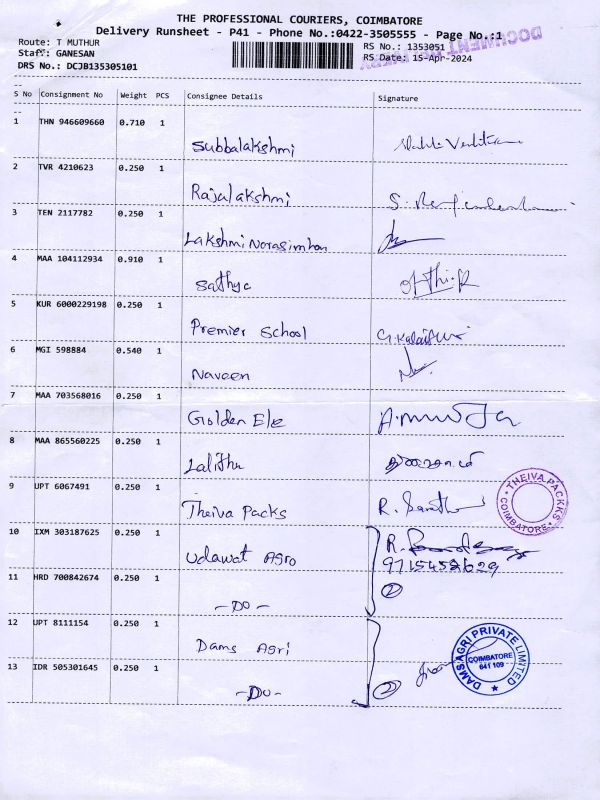 THE PROFESSIONAL COURIERS, COIMBATORE
Delivery Runsheet - P41 - Phone No.:0422-3505555 - Page No.:1
Route: T MUTHUR
Staff: GANESAN
DRS No.: DCJB135305101
RS No.: 1353051
RS Date: 15-Apr-2024
DOCUMENT
S No Consignment No Weight PCS Consignee Details Signature
1 THN 946609660 0.710 1
Subbalakshmi
2 TVR 4210623 0.250 1
Rajalakshmi
3 TEN 2117782 0.250 1
Lakshmi Norasimhan
4 MAA 104112934 0.910 1
Sathya
5 KUR 6000229198 0.250 1
Premier School
6 MGI 598884 0.540 1
Naveen
7 MAA 703568016 0.250 1
Golden Ele
8 MAA 865560225 0.250 1
Lalitha
9 UPT 6067491 0.250 1
Theiva Packs
THEIVA PACKKS
COIMBATORE
10 IXM 303187625 0.250 1
Udawat Agro
11 HRD 700842674 0.250 1
- DO -
2
12 UPT 8111154 0.250 1
Dams Agri
13 IDR 505301645 0.250 1
- DO -
2
DAMSAGRI PRIVATE LIMITED
COIMBATORE
641 109